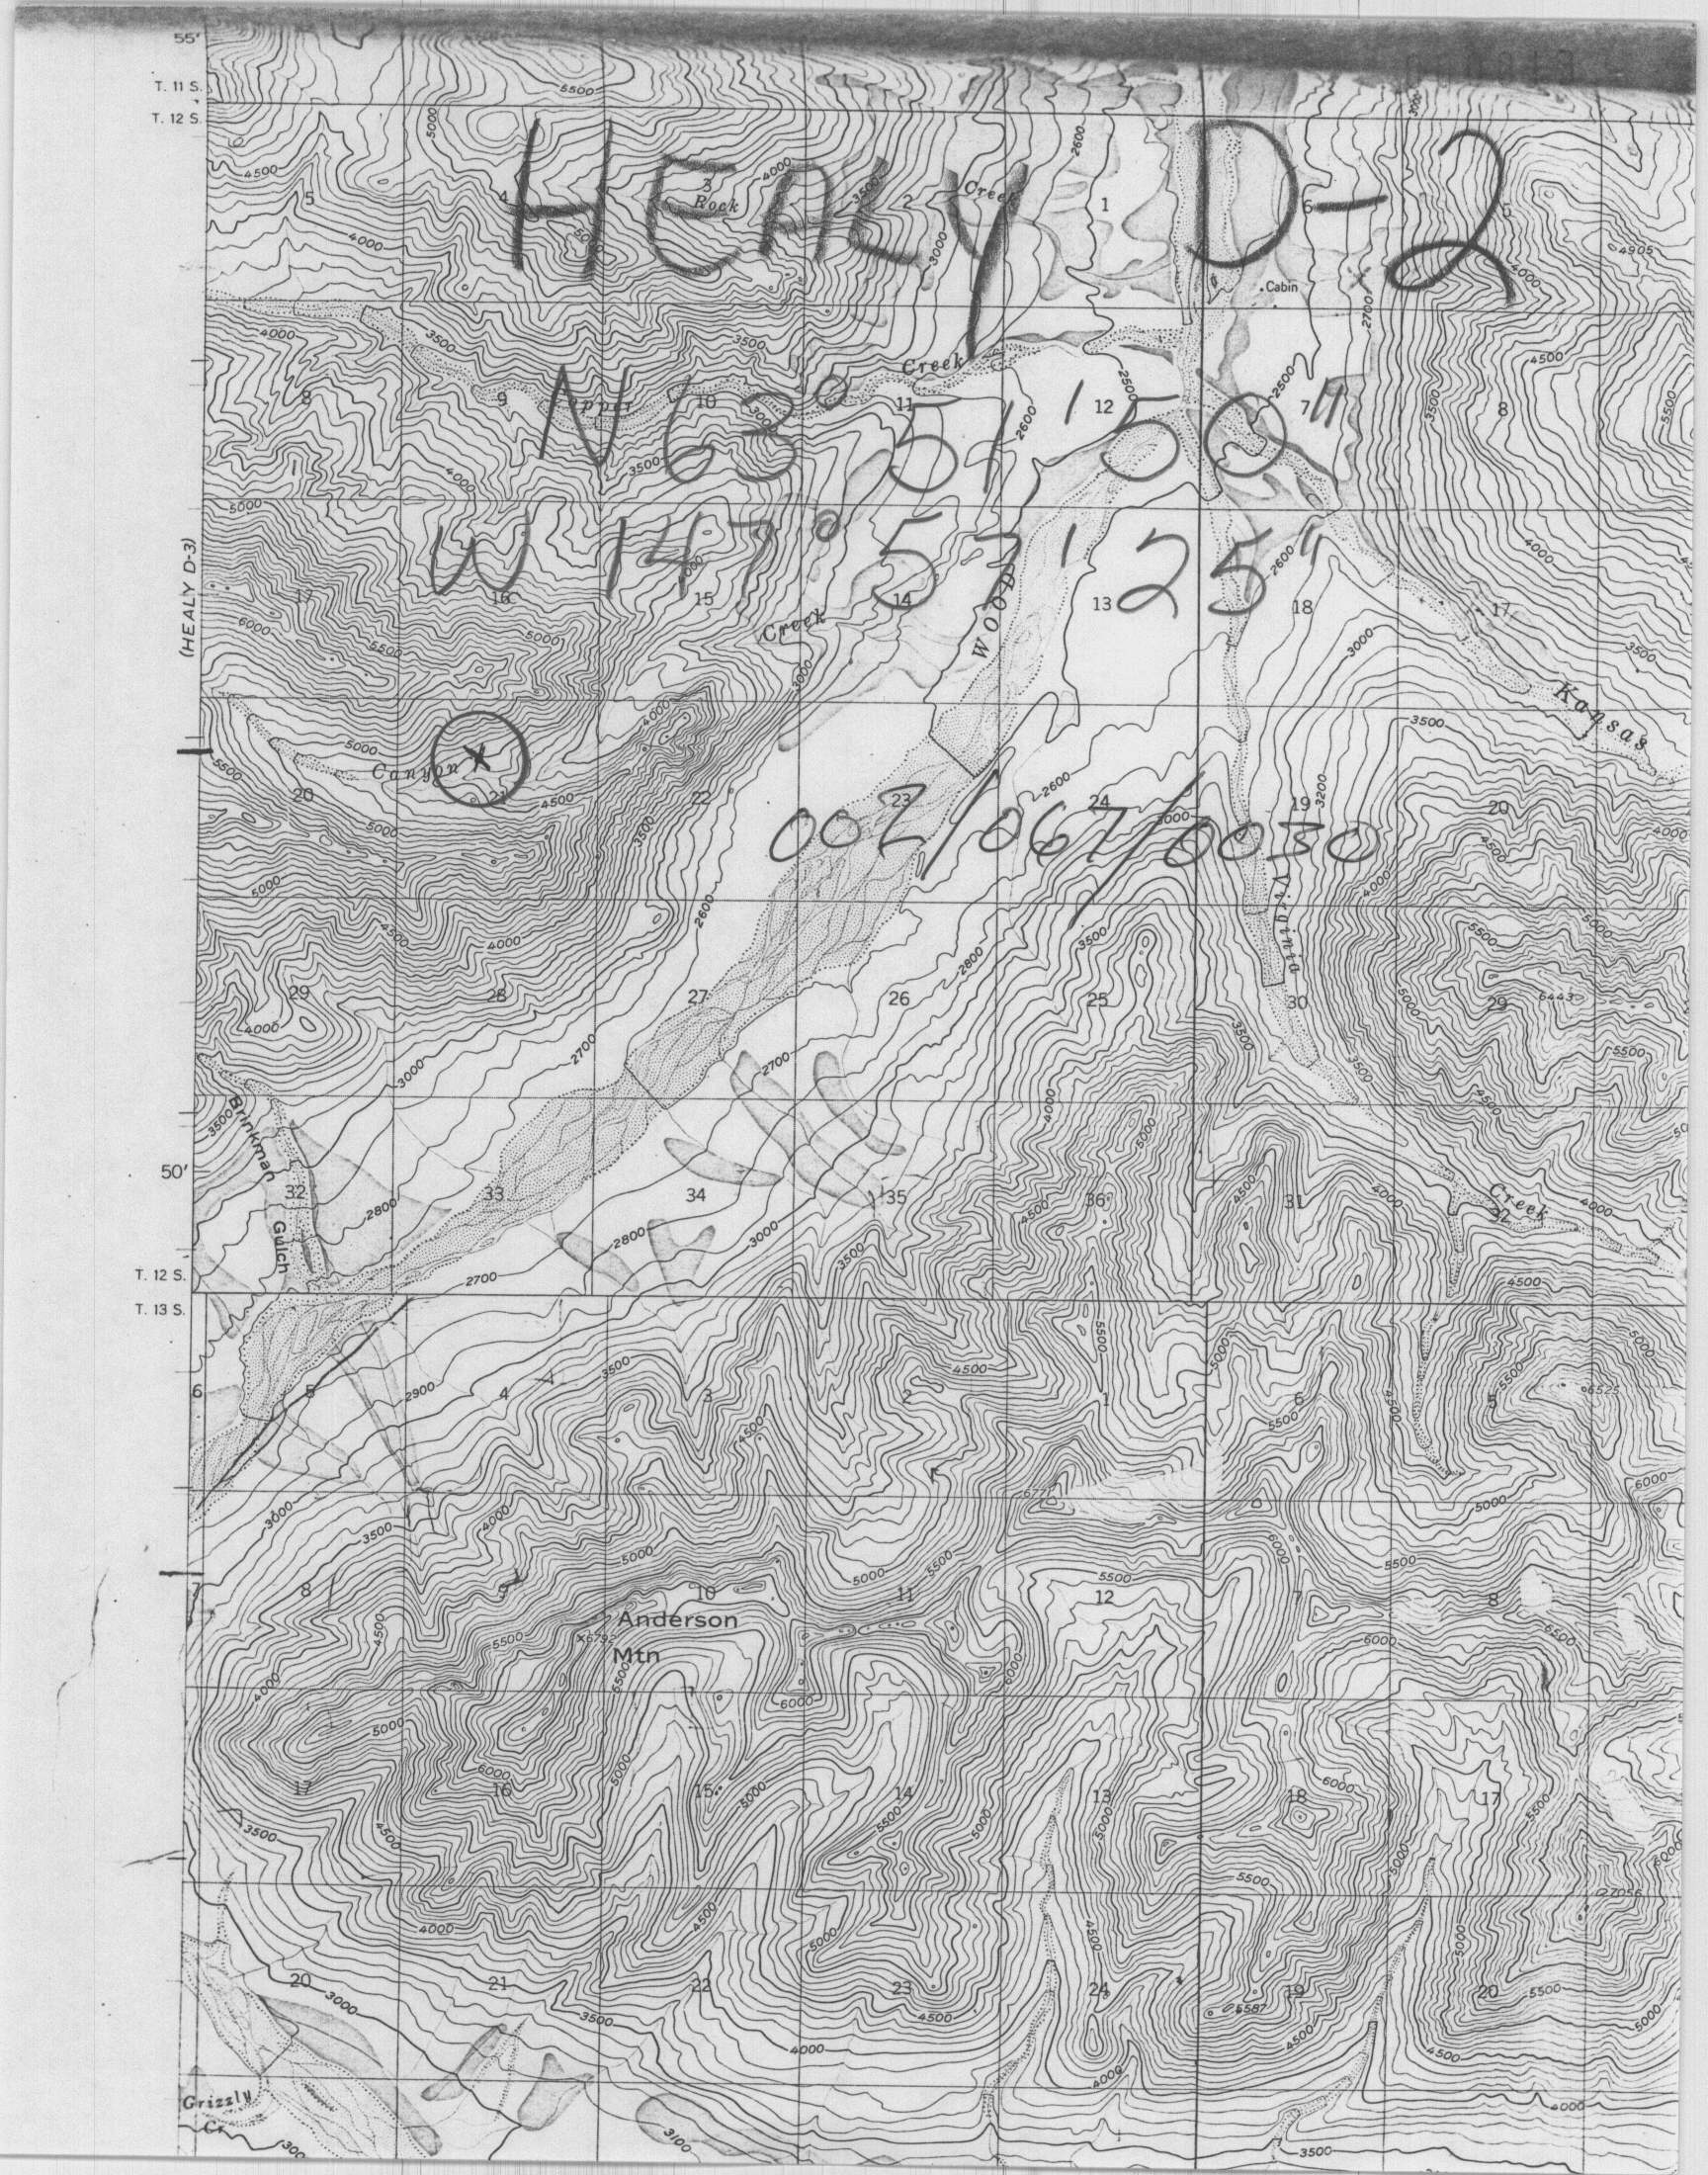 55'
T. 11 S.
T. 12 S.
5500
5000
2600
3000
HEALY D-2
4500
5
4
3
4000
3500
2
Creek
1
6
5
Rock
4905
4000
5000
3000
4000
Cabin
2700
4000
3500
3500
Creek
2500
2500
4500
5500
8
9
10
11
12
7
8
3000
2600
3500
N 63° 51' 50"
4000
3500
5000
W 147° 57' 25"
4000
2600
(HEALY D-3)
17
16
15
14
13
18
17
WOOD
Creek
6000
5500
3000
3500
3000
Kansas
4000
3500
5000
5500
Canyon
X
20
21
22
23
24
19
20
4500
2600
3200
5000
3500
3000
4000
002/067/0030
4500
5000
Virginia
4000
2600
4500
4000
3500
2800
5500
5000
29
28
27
26
25
30
29
6443
5000
4000
2700
3500
5500
3000
2700
3500
3500
Brinkman
4000
5000
4500
50'
32
33
34
35
36
31
32
Gulch
2800
4500
4500
4000
Creek
4000
2800
3000
3500
T. 12 S.
2700
4500
T. 13 S.
5500
5000
5000
3500
4500
5500
6525
6
5
2900
4
3
2
1
6
5
4500
5500
4500
6000
3000
3500
4000
5000
5000
5000
5500
6000
5500
5500
7
8
9
10
11
12
7
8
Anderson
Mtn
4500
5500
6500
6000
6000
6500
4000
6000
5000
5000
6000
6000
17
16
15
14
13
18
17
5000
5500
5000
5000
5500
3500
4500
5000
5500
4000
4500
5000
4500
5000
20
21
22
23
24
19
20
3000
3500
4500
5587
5500
4000
4500
4500
5000
4000
4000
Grizzly
Cr
3100
3500